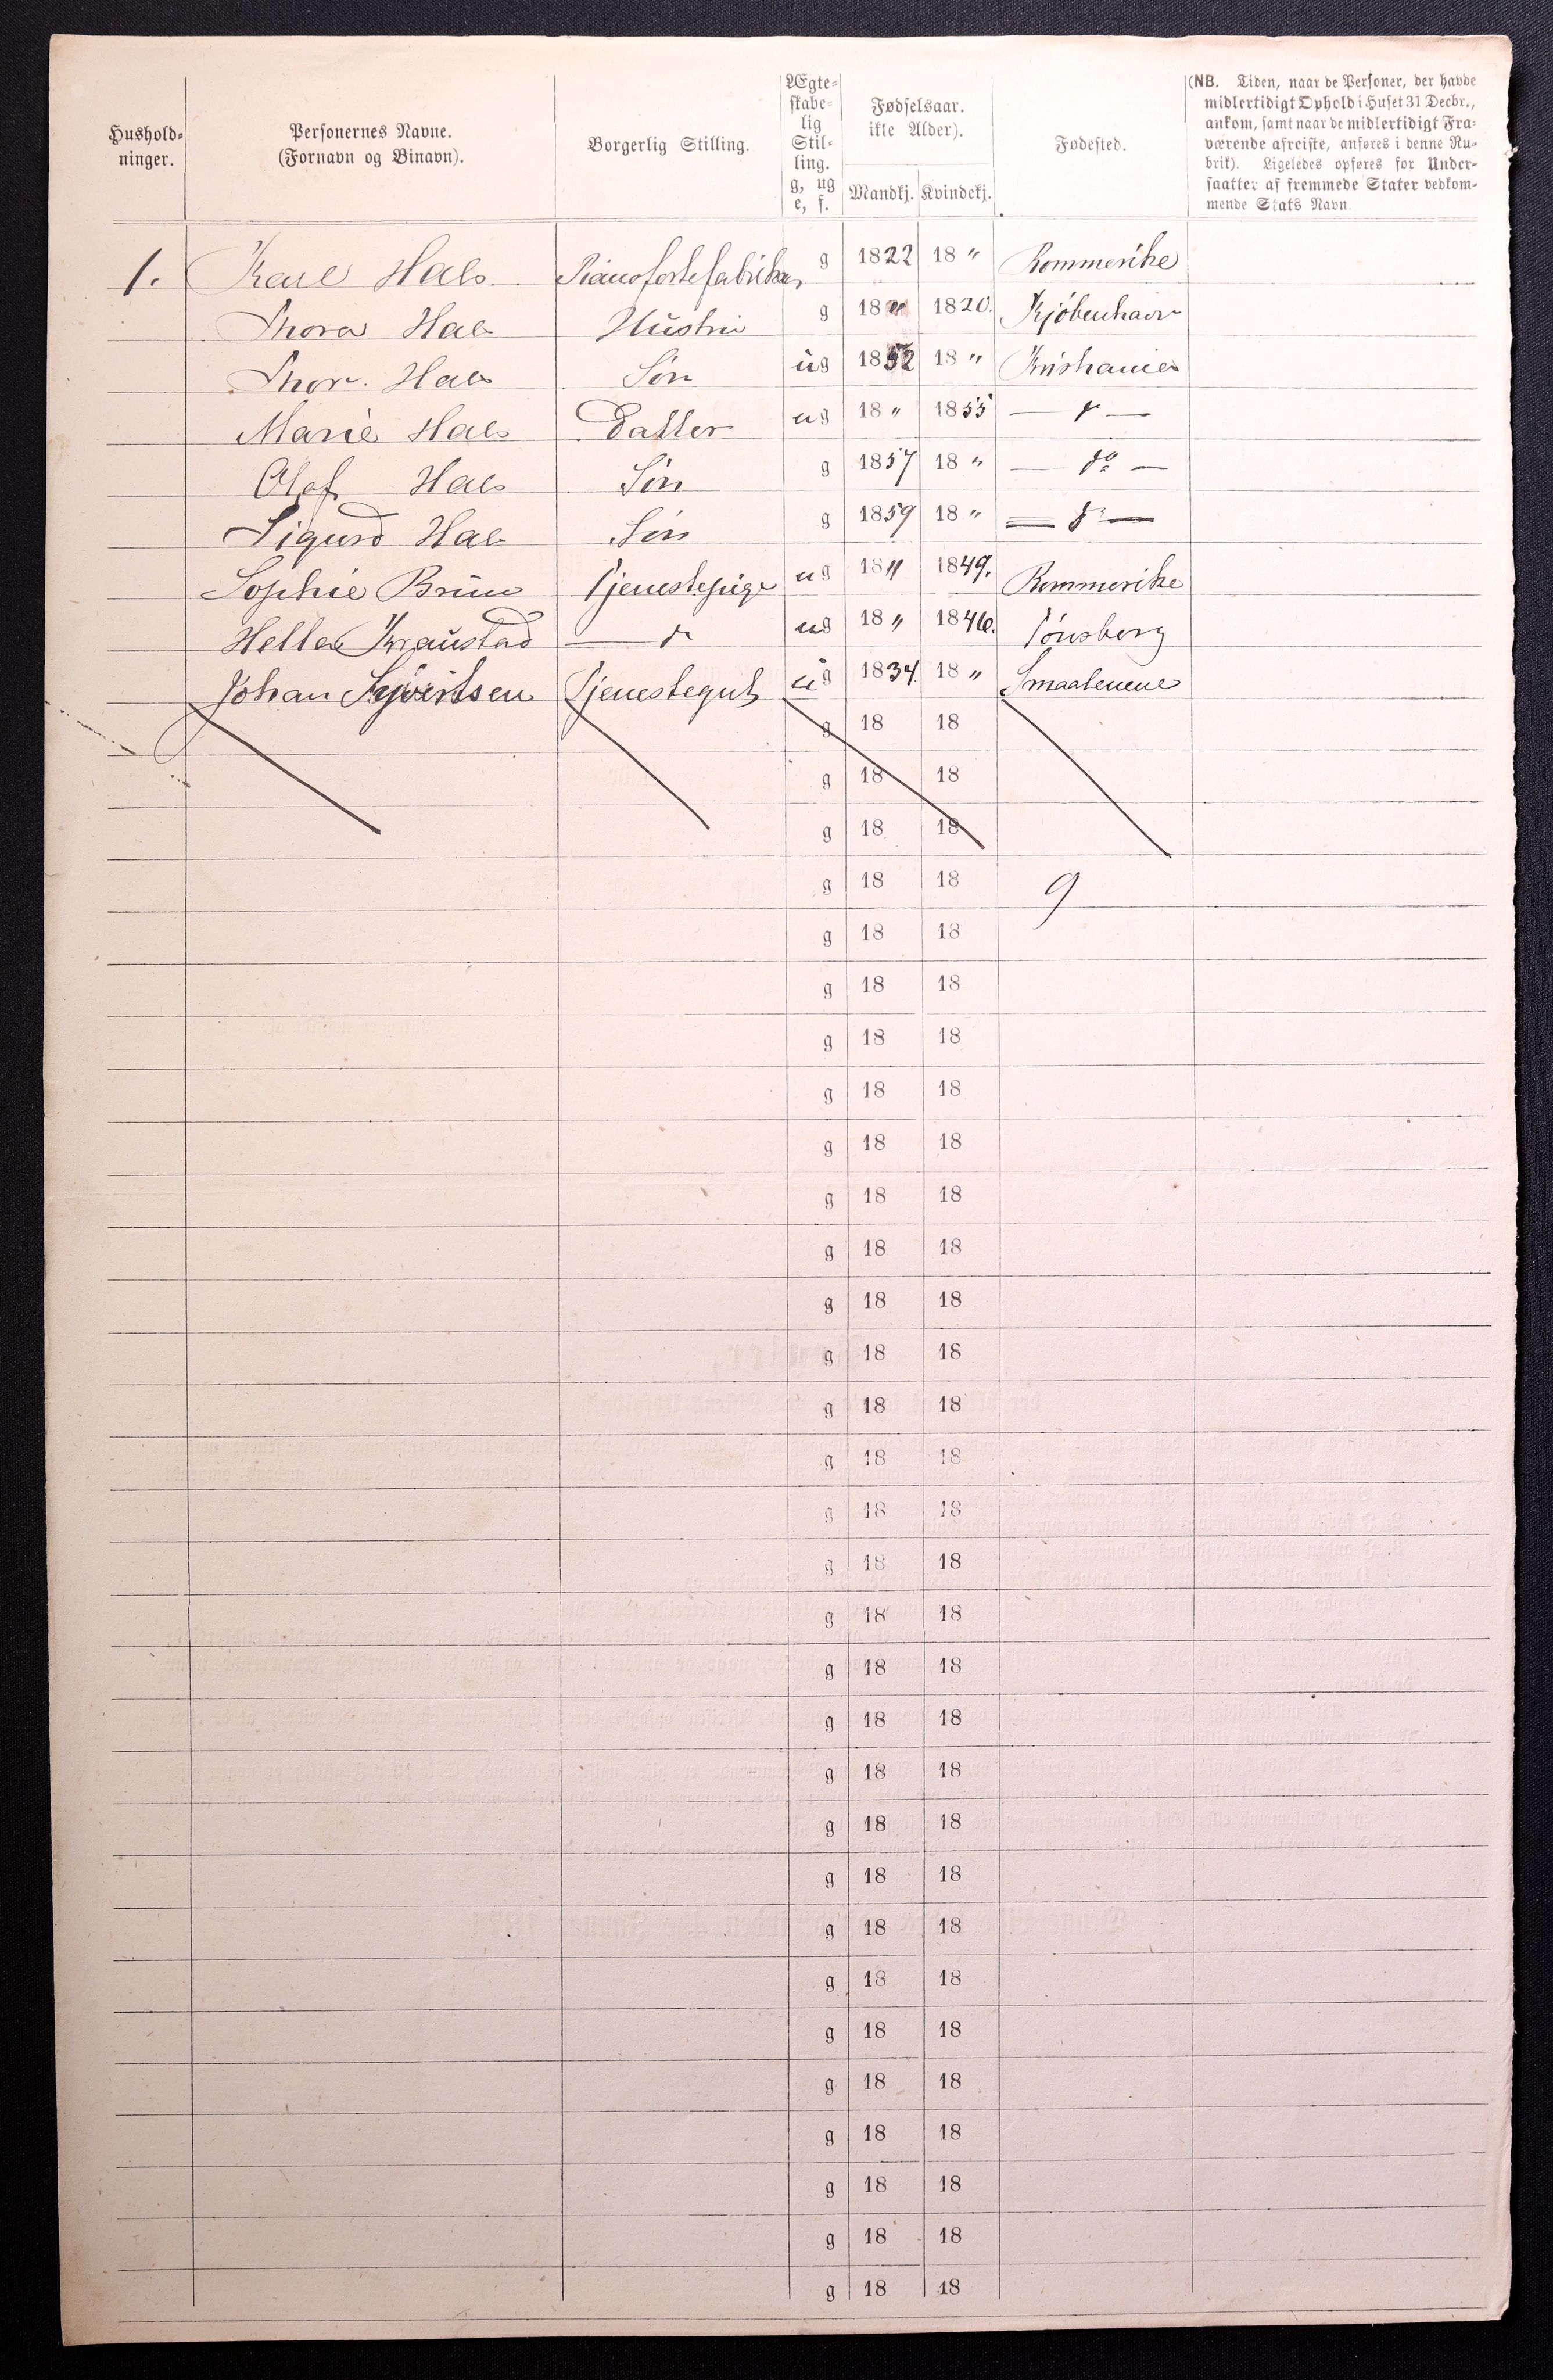 Hushold-
ninger.
Personernes Navne.
(Fornavn og Binavn).
Borgerlig Stilling.
Ægte-
skabe-
lig
Stil-
ling.
g, ug
e, f.
Fødselsaar.
ikke Alder).
Mandkj. Kvindekj.
Fødested.
(NB. Tiden, naar de Personer, der havde
midlertidigt Ophold i Huset 31 Decbr.,
ankom, samt naar de midlertidigt Fra-
værende afreiste, anføres i denne Ru-
brik). Ligeledes opføres for Under-
saatter af fremmede Stater vedkom-
mende Stats Navn.
1. Karl Hals. Pianofortefabrikør g 1822 18 " Rommerike
Thora Hals Hustru g 18 " 1820. Kjöbenhavn
Thor. Hals Sön ug 1852 18 " Kristiania
Marie Hals Datter ug 18 " 1855 — d —
Olaf Hals Sön g 1857 18 " — do —
Sigurd Hals Sön g 1859 18 " — do —
Sophie Bruun Tjenestepige ug 18 " 1849. Rommerike
Helle Kraustad — d ug 18 " 1846. Tönsberg
Johan Syvertsen Tjenestegut ug 1834. 18 " Smaalenene
g 18 18
g 18 18
g 18 18
g 18 18 9
g 18 18
g 18 18
g 18 18
g 18 18
g 18 18
g 18 18
g 18 18
g 18 18
g 18 18
g 18 18
g 18 18
g 18 18
g 18 18
g 18 18
g 18 18
g 18 18
g 18 18
g 18 18
g 18 18
g 18 18
g 18 18
g 18 18
g 18 18
g 18 18
g 18 18
g 18 18
g 18 18